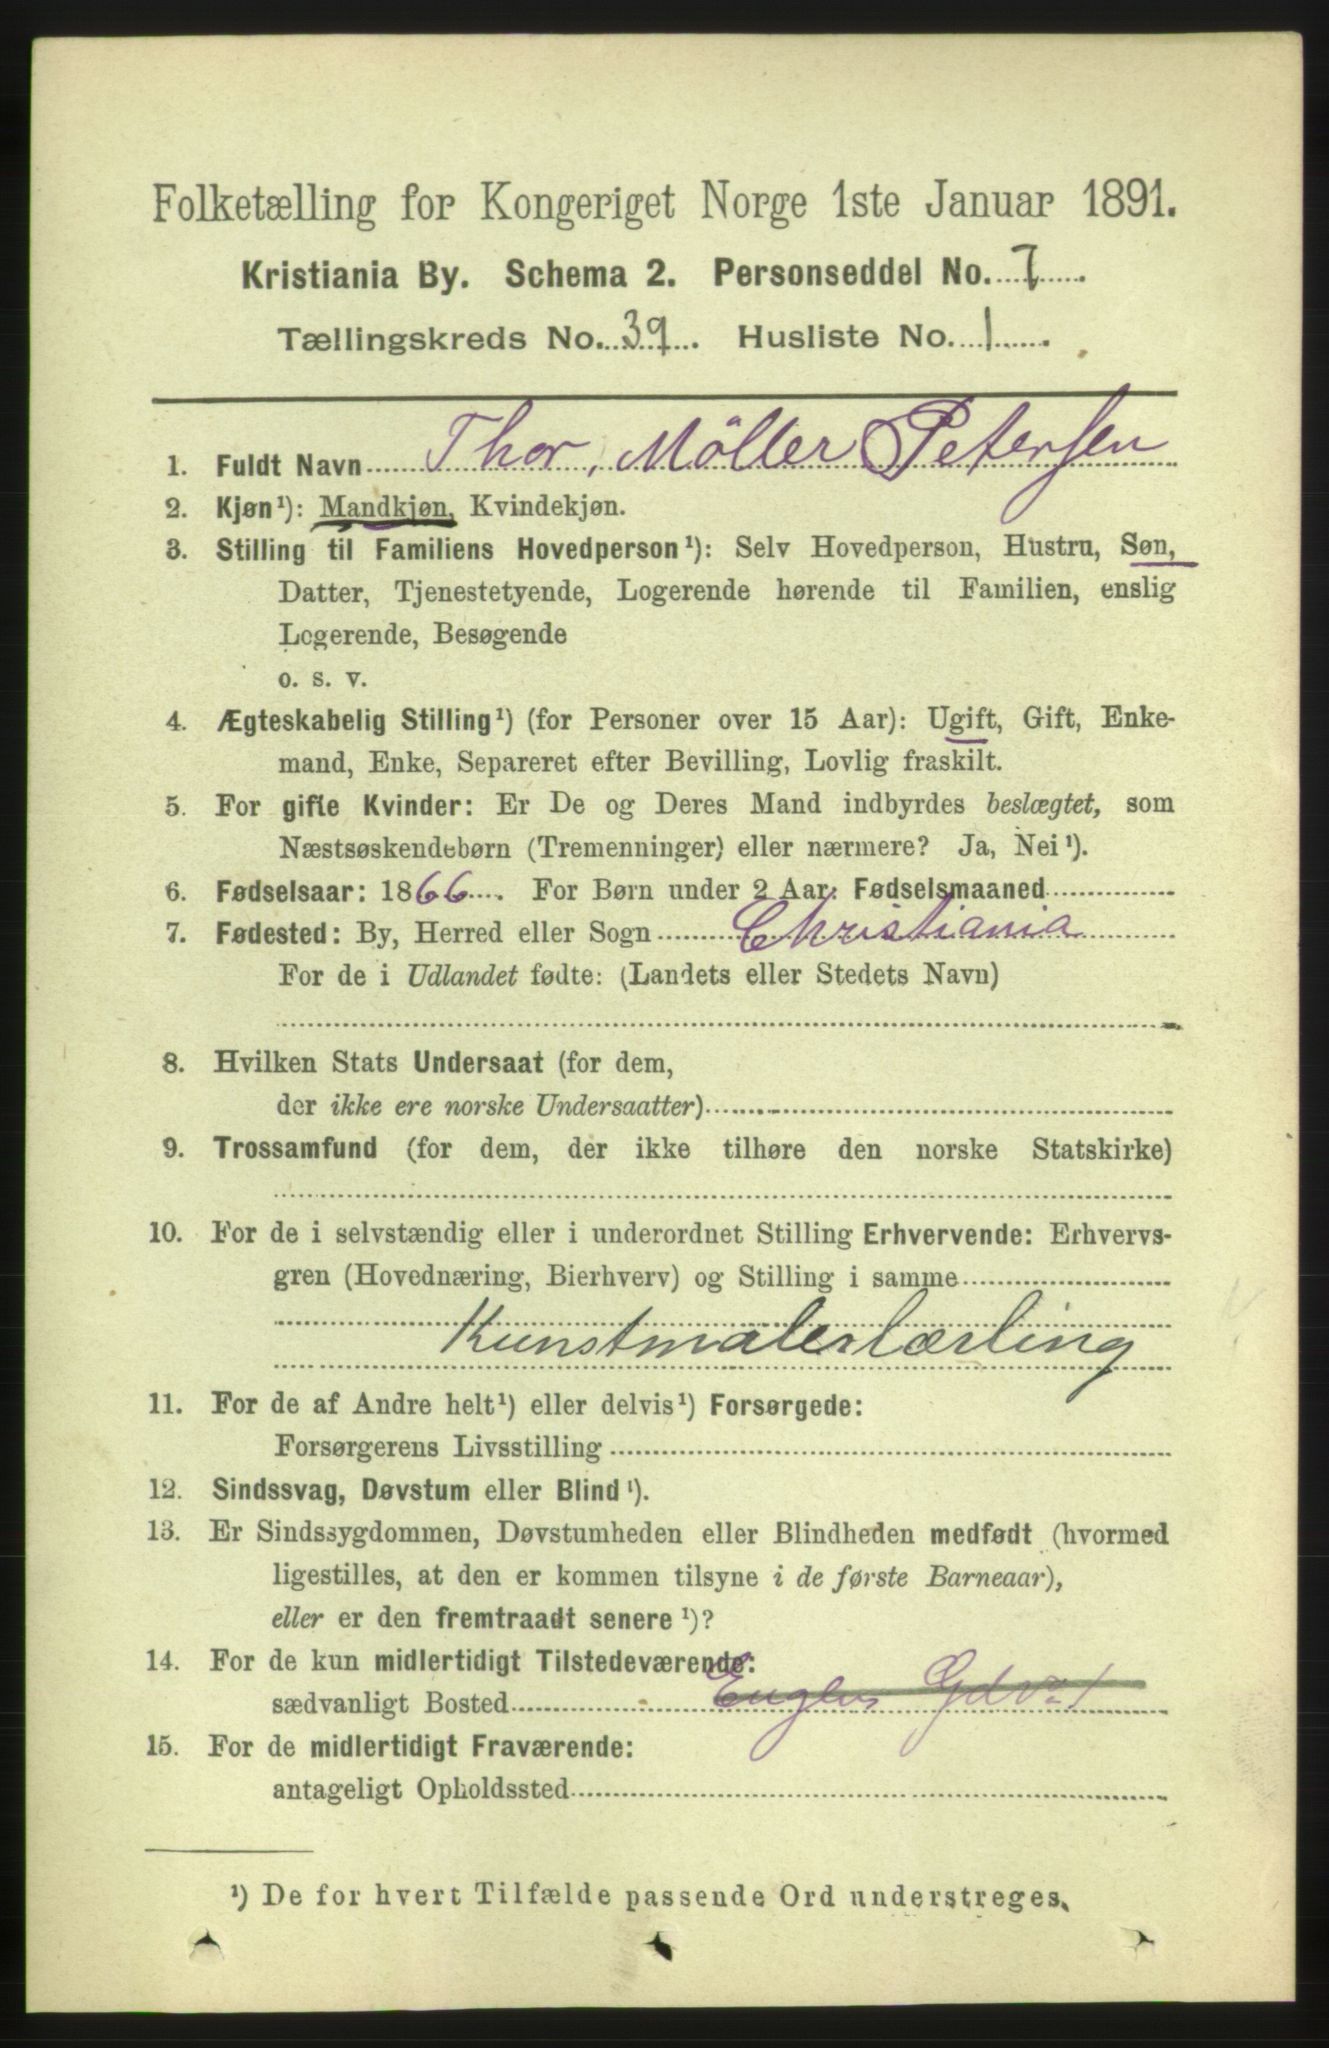 Folketælling for Kongeriget Norge 1ste Januar 1891.
Kristiania By. Schema 2. Personseddel No. 7
Tællingskreds No. 39. Husliste No. 1.
1. Fuldt Navn Thor, Möller Petersen
2. Kjøn¹): Mandkjøn, Kvindekjøn.
3. Stilling til Familiens Hovedperson¹): Selv Hovedperson, Hustru, Søn,
Datter, Tjenestetyende, Logerende hørende til Familien, enslig
Logerende, Besøgende
o. s. v.
4. Ægteskabelig Stilling¹) (for Personer over 15 Aar): Ugift, Gift, Enke-
mand, Enke, Separeret efter Bevilling, Lovlig fraskilt.
5. For gifte Kvinder: Er De og Deres Mand indbyrdes beslægtet, som
Næstsøskendebørn (Tremenninger) eller nærmere? Ja, Nei¹).
6. Fødselsaar: 1866. For Børn under 2 Aar: Fødselsmaaned
7. Fødested: By, Herred eller Sogn Christiania
For de i Udlandet fødte: (Landets eller Stedets Navn)
8. Hvilken Stats Undersaat (for dem,
der ikke ere norske Undersaatter)
9. Trossamfund (for dem, der ikke tilhøre den norske Statskirke)
10. For de i selvstændig eller i underordnet Stilling Erhvervende: Erhvervs-
gren (Hovednæring, Bierhverv) og Stilling i samme
Kunstmalerlærling
11. For de af Andre helt¹) eller delvis¹) Forsørgede:
Forsørgerens Livsstilling
12. Sindssvag, Døvstum eller Blind¹).
13. Er Sindssygdommen, Døvstumheden eller Blindheden medfødt (hvormed
ligestilles, at den er kommen tilsyne i de første Barneaar),
eller er den fremtraadt senere¹)?
14. For de kun midlertidigt Tilstedeværende:
sædvanligt Bosted
15. For de midlertidigt Fraværende:
antageligt Opholdssted
¹) De for hvert Tilfælde passende Ord understreges.